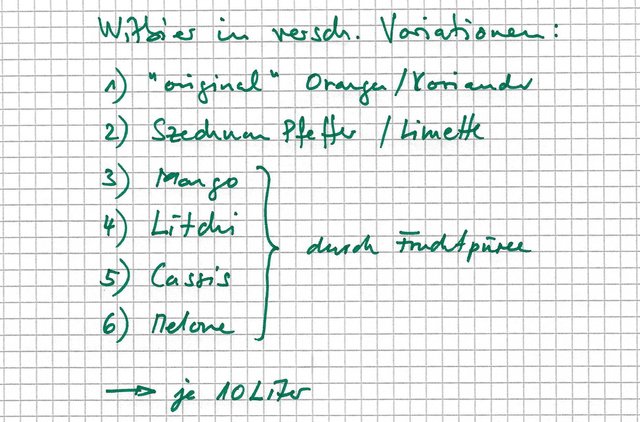 Witbier in versch. Variationen:
1) "original" Orange/Koriander
2) Szechuan Pfeffer / Limette
3) Mango
4) Litchi
durch Fruchtpüree
5) Cassis
6) Melone
→ je 10 Liter